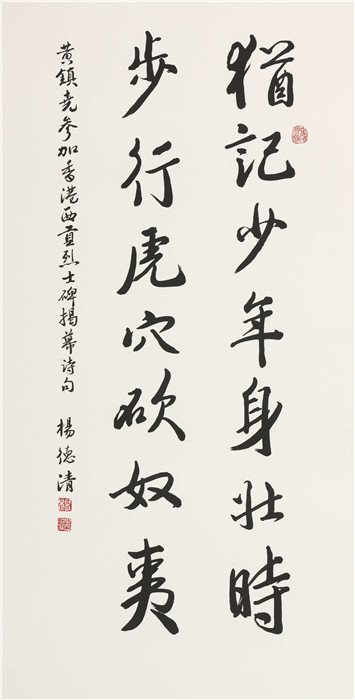 猶記少年身壮時
步行虎穴砍奴夷
黄鎮尧参加香港西貢烈士碑揭幕诗句 楊德清